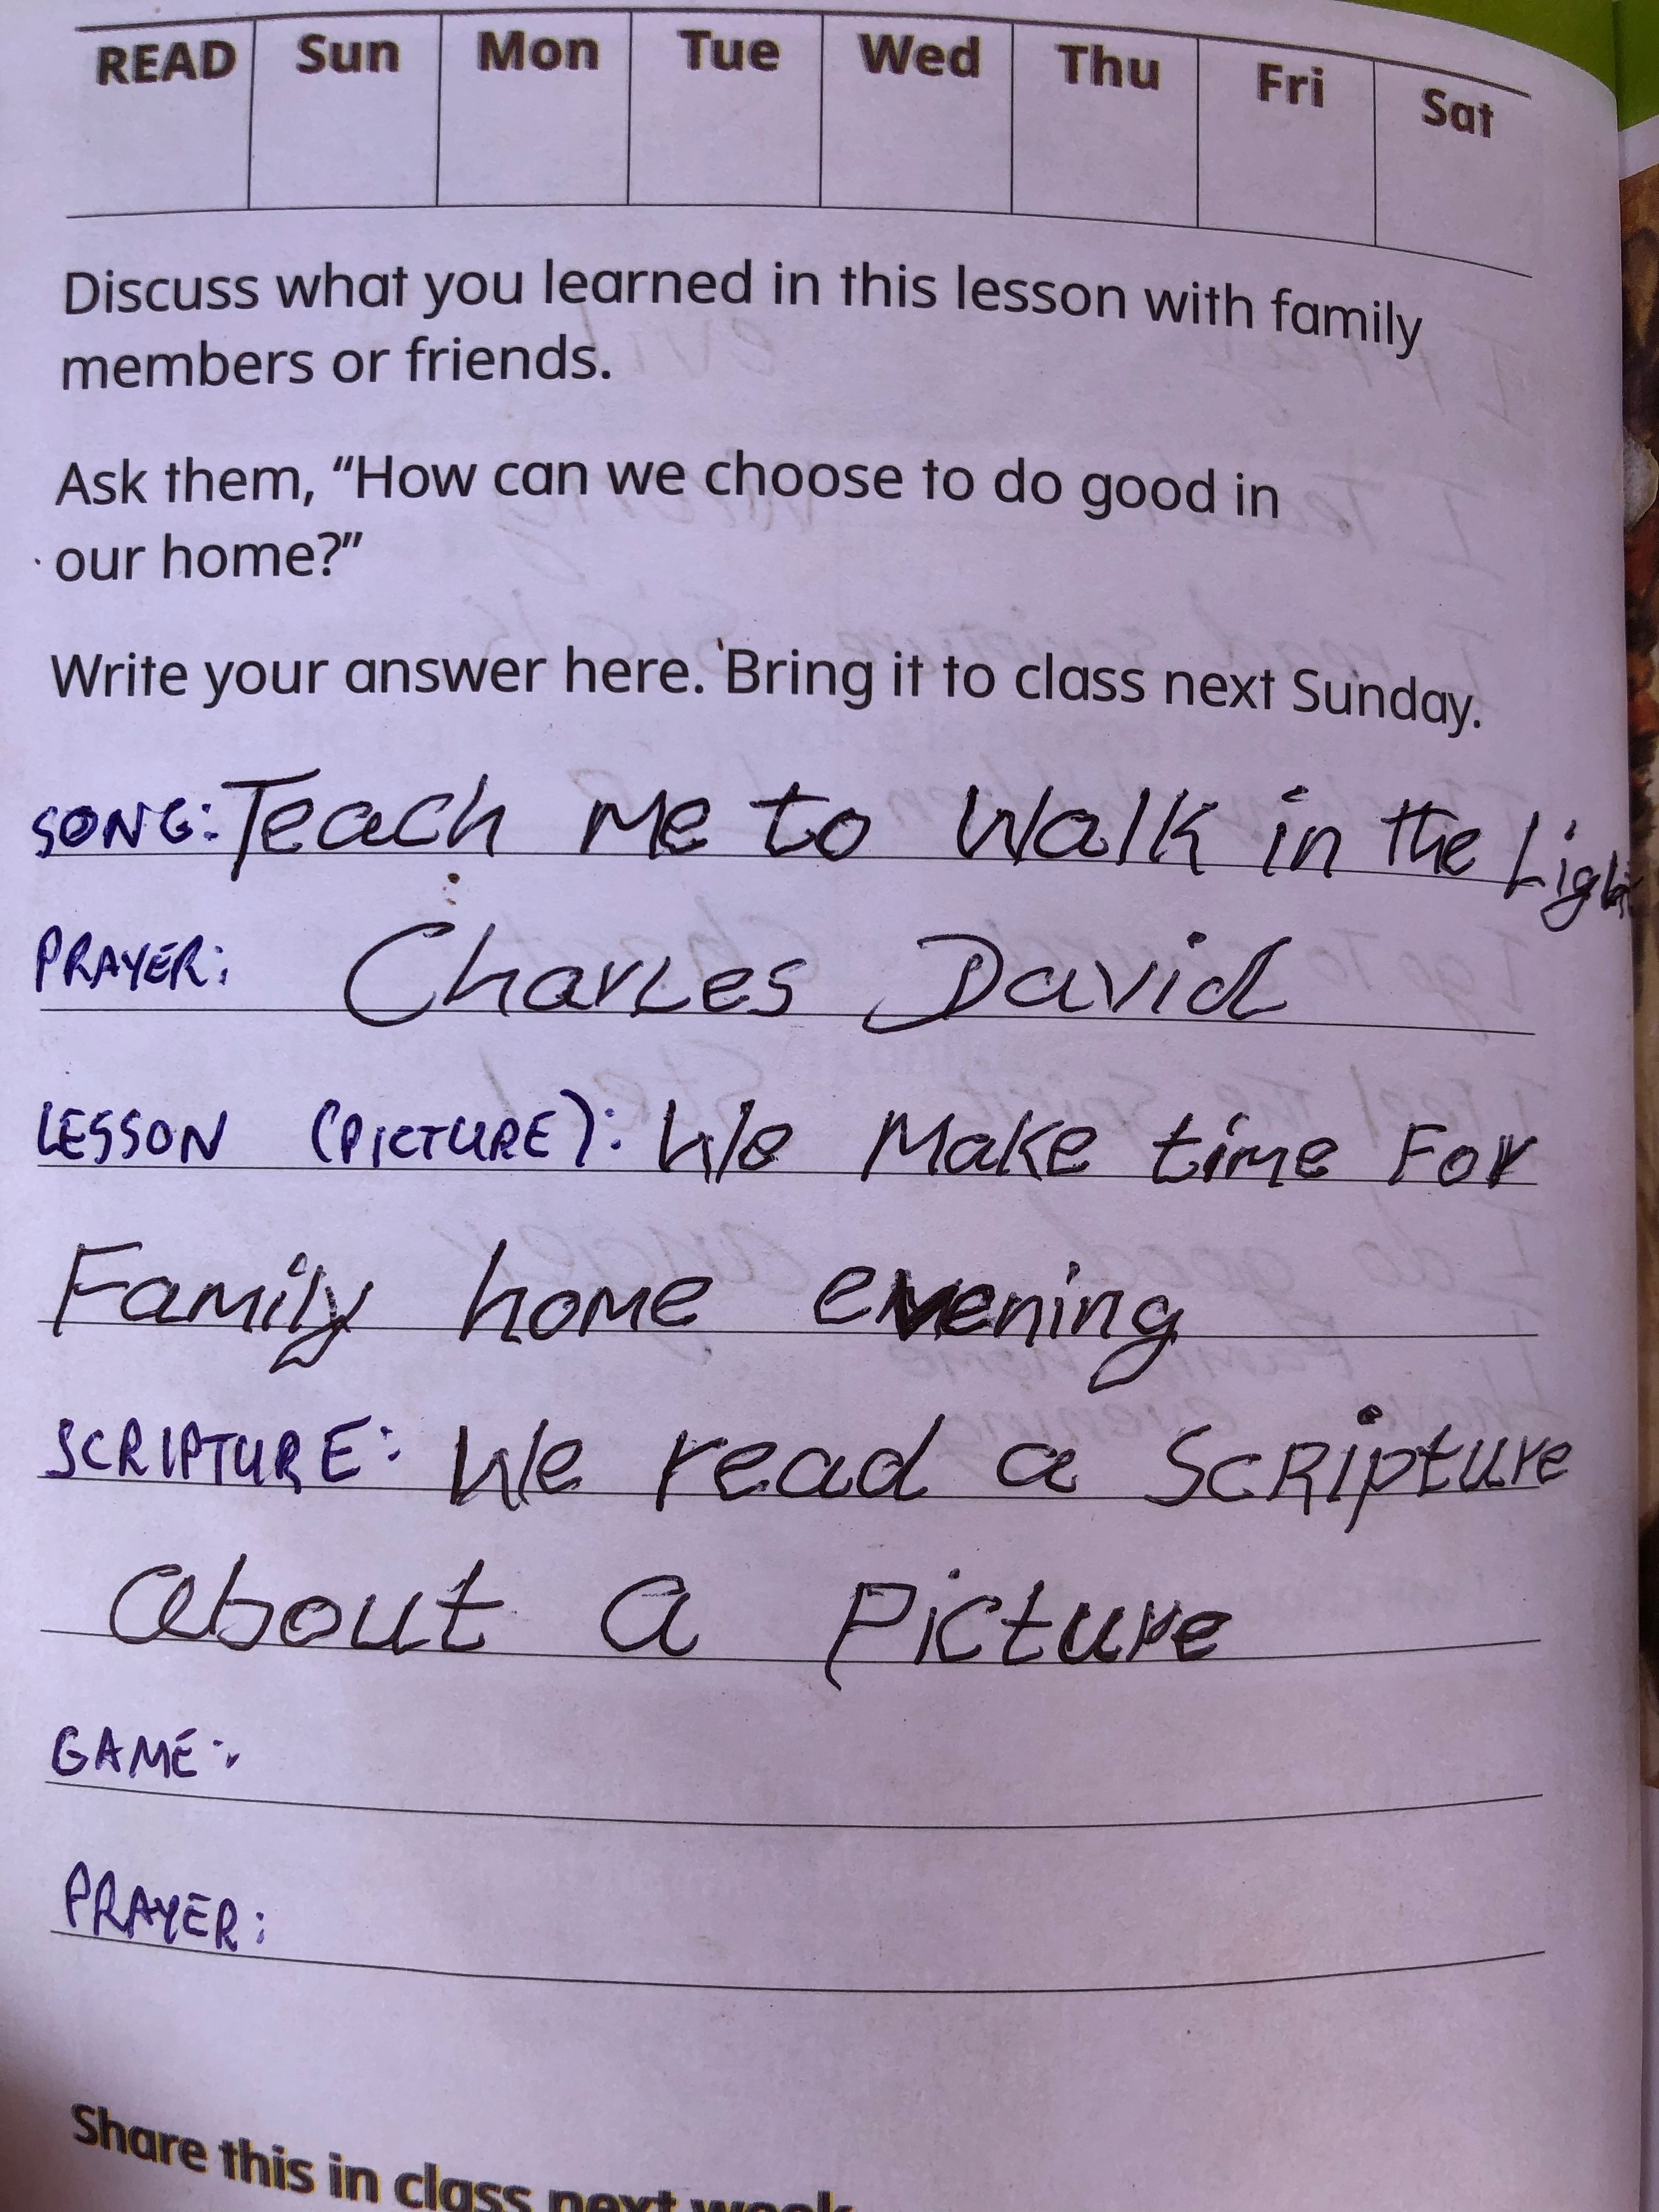 READ Sun Mon Tue Wed Thu Fri Sat
Discuss what you learned in this lesson with family
members or friends.
Ask them, “How can we choose to do good in
our home?”
Write your answer here. Bring it to class next Sunday.
SONG: Teach Me to Walk in the Light
PRAYER: Charles David
LESSON (PICTURE): We Make time For
Family home evening
SCRIPTURE: We read a Scripture
about a Picture
GAME:
PRAYER:
Share this in class next week